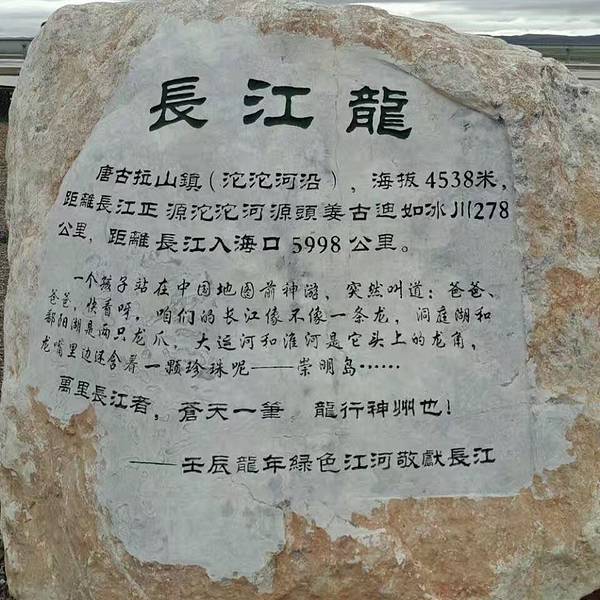 長江龍
唐古拉山鎮（沱沱河沿），海拔4538米，
距離長江正源沱沱河源頭姜古迪如冰川278
公里，距離長江入海口5998公里。
一个孩子站在中国地图前神游，突然叫道：爸爸、
爸爸，快看呀，咱们的长江像不像一条龙，洞庭湖和
鄱阳湖是两只龙爪，大运河和淮河是它头上的龙角，
龙嘴里边还含着一颗珍珠呢——崇明岛……
萬里長江者，蒼天一筆 龍行神州也！
——壬辰龍年綠色江河敬獻長江